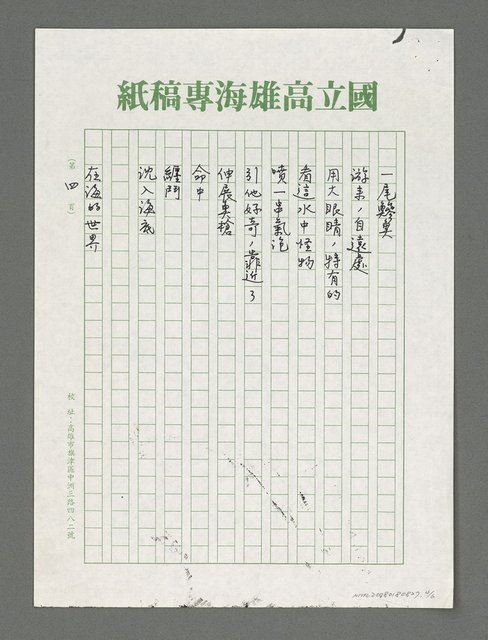 國立高雄海專稿紙
一尾鬱臭
游來，自遠處
用大眼睛，特有的
看這水中怪物
噴一串氣泡
引他好奇，靠近了
伸展臭槍
命中
纏鬥
沈入海底
在海的世界
(第四頁)
校址：高雄市旗津區中洲三路四八二號